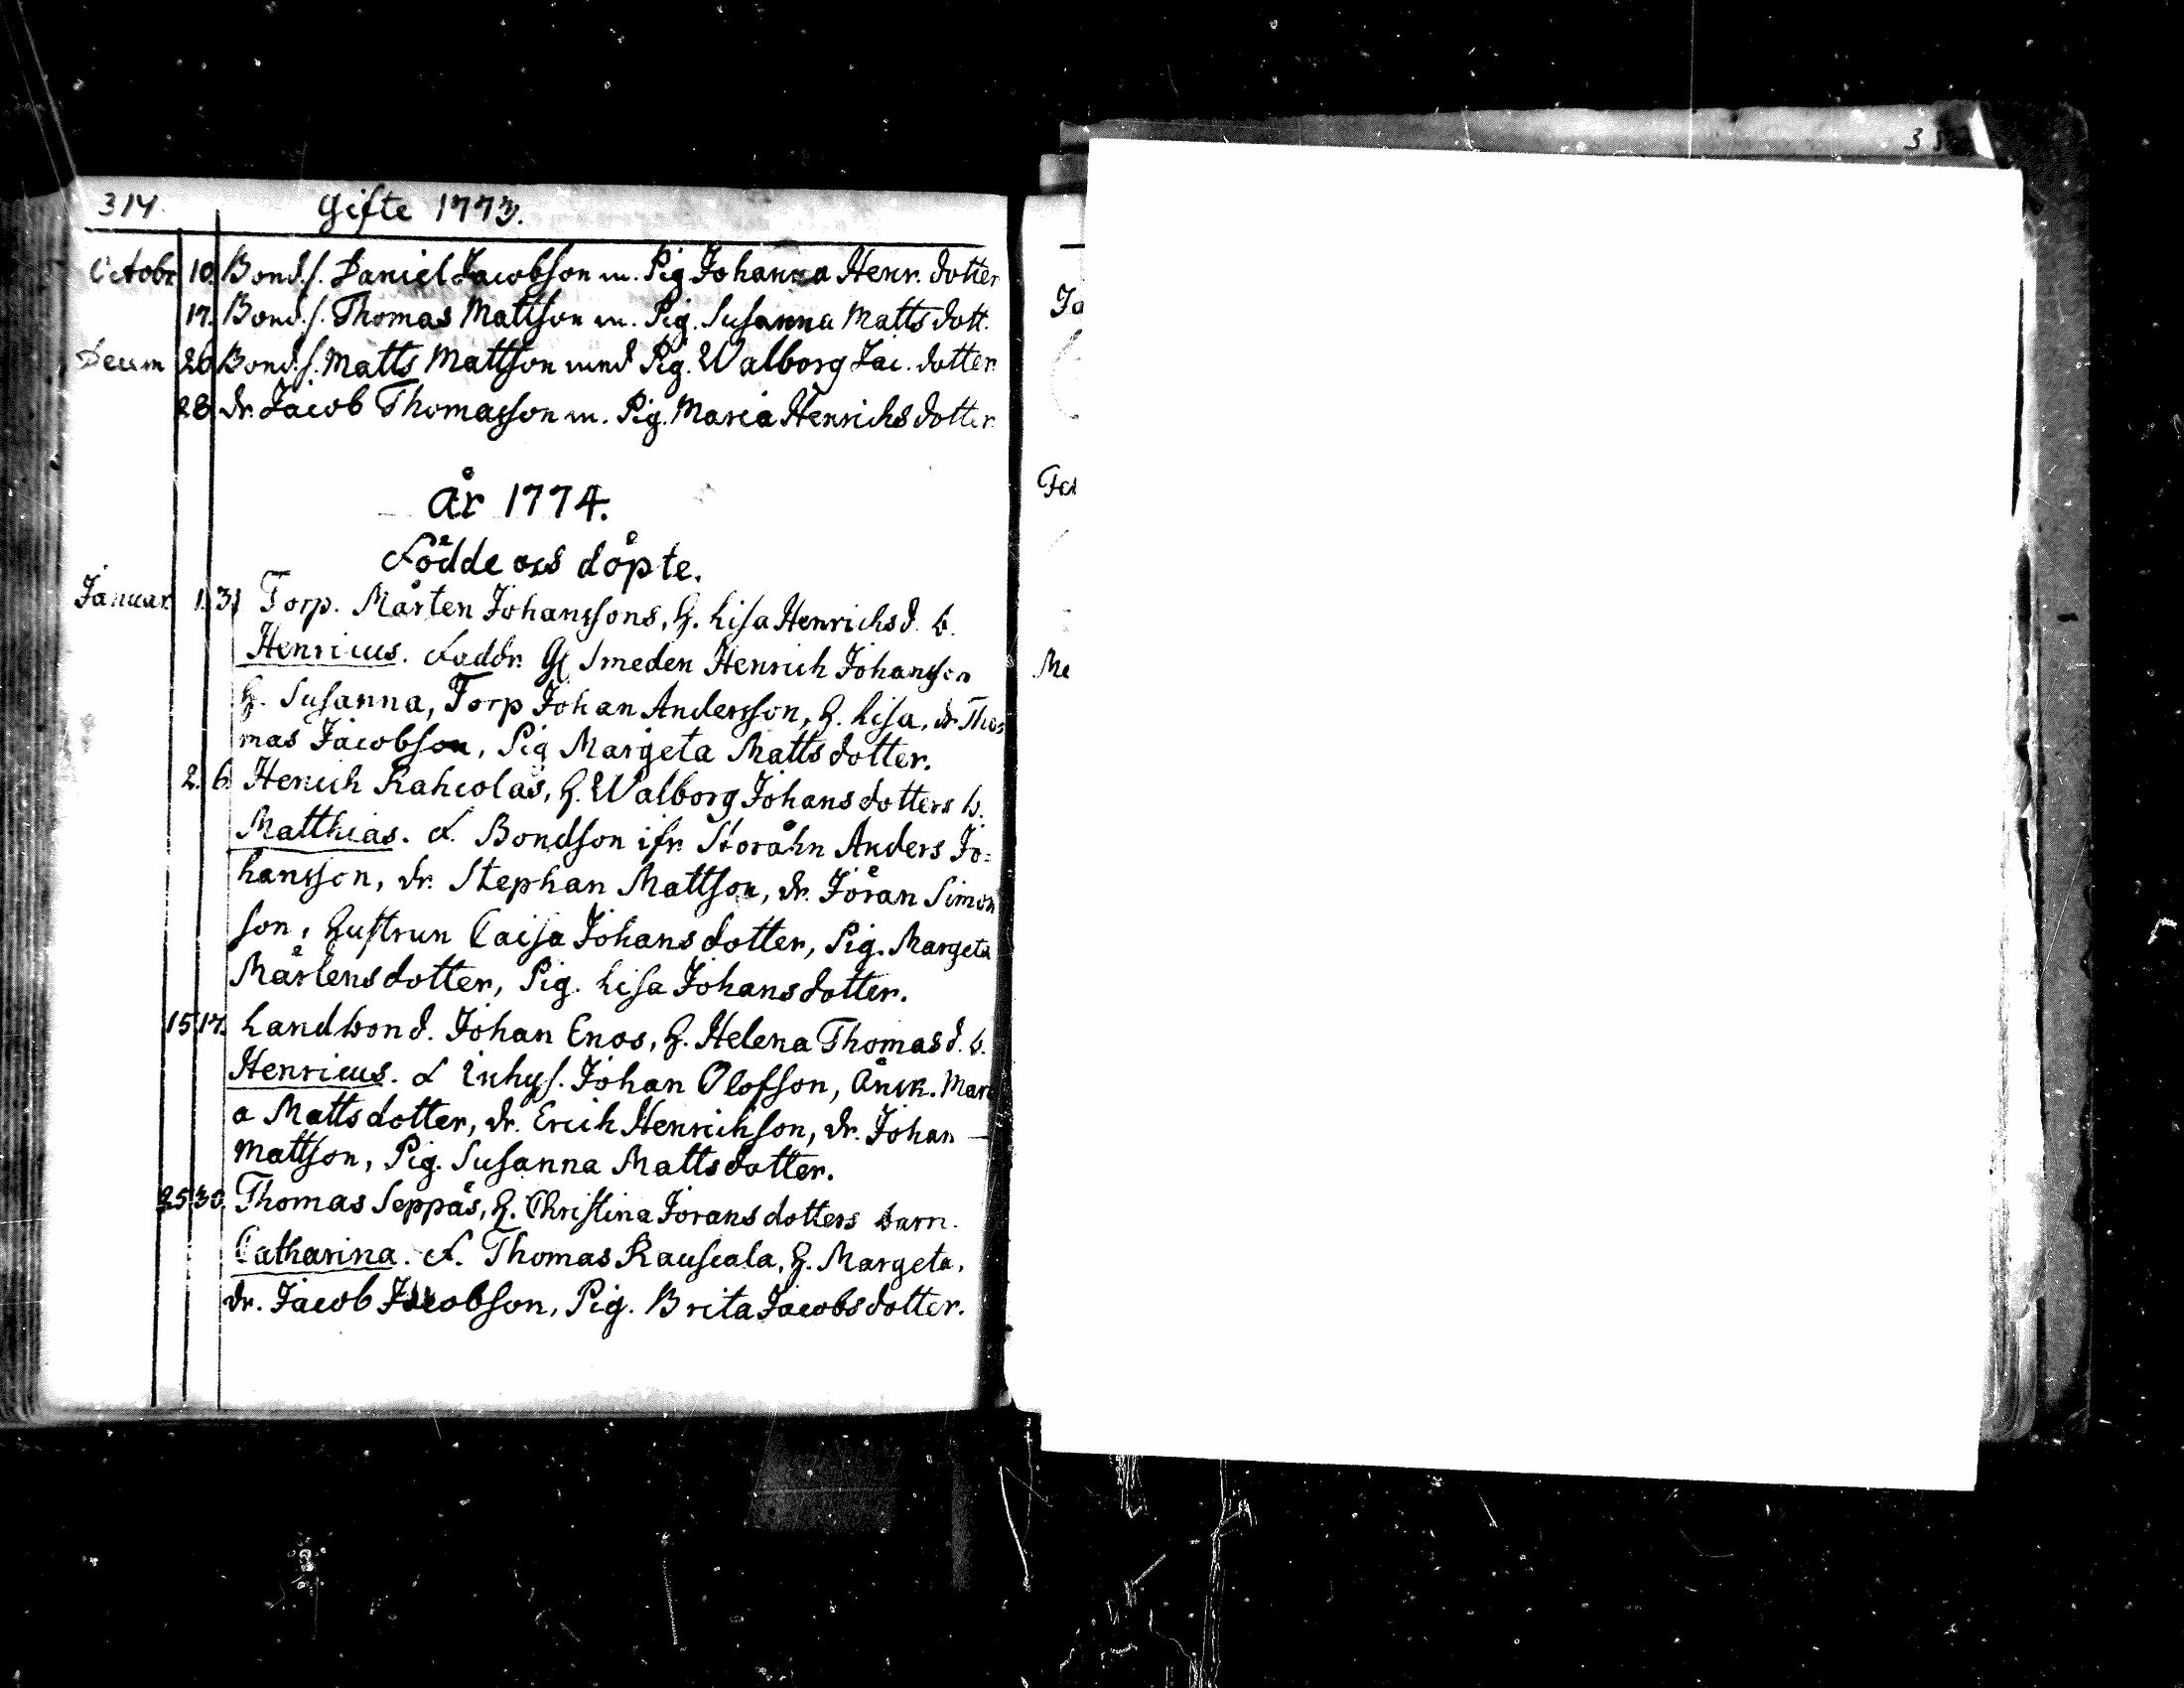 314. Gifte 1773.
Octobr 10. Bond.s. Daniel Jacobson m. Pig Johanna Henr. dotter
17. Bond.s. Thomas Mattson m. Pig. Susanna Matts dott.
Decem 26 Bond.s. Matts Mattson med Pig. Walborg Jac. dotter
28. dr. Jacob Thomasson m. Pig. Maria Henrichs dotter
År 1774.
Födde och döpte.
Januar. 1. 3. Torp. Mårten Johanssons, H. Lisa Henrichs d. b.
Henricus. Faddr. Smeden Henrich Johansson
H. Susanna, Torp Johan Andersson, H. Lisa, dr. Tho=
mas Jacobson, Pig Margeta Matts dotter.
2. 6. Henrich Rahcolas, H. Walborg Johans dotters b.
Matthias. F. Bondson ifr. Storåhn Anders Jo=
hansson, dr. Stephan Mattson, dr. Jöran Simon
son, Hustrun Caisa Johans dotter, Pig. Margeta
Mårtens dotter, Pig. Lisa Johans dotter.
15 17. Landbond. Johan Enos, H. Helena Thomas d. b.
Henricus. F Inhys. Johan Olofson, Änck. Mari
a Matts dotter, dr. Erich Henrichson, dr. Johan
Mattson, Pig. Susanna Matts dotter.
25 30. Thomas Seppäs, H. Christina Jörans dotters barn.
Catharina. F. Thomas Rauscala, H. Margeta,
dr. Jacob Jacobson, Pig. Brita Jacobs dotter.